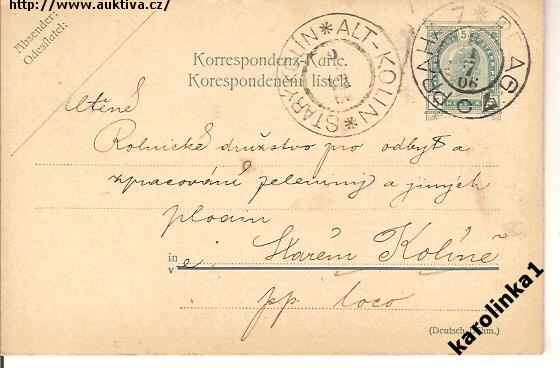 http://www.auktiva.cz/
Absender:
Odesílatel:
Korrespondenz-Karte.
Korespondenční lístek.
STARÝ KOLÍN * ALT-KOLIN *
PRAHA 7 * PRAG
1
7
06
5
Ctěné
Rolnické družstvo pro odbyt a
zpracování zeleniny a jiných
plodin
in
v
Starém Kolíně
pp loco
(Deutsch-Böhm.)
karolinka1